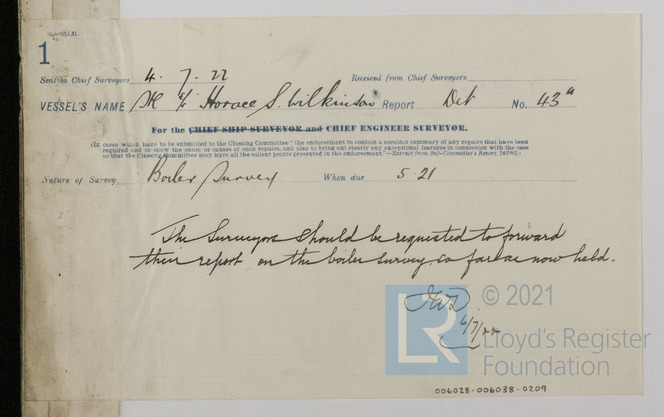 1
Sent to Chief Surveyors 4. 7. 22 Received from Chief Surveyors
VESSEL'S NAME Horace S. Wilkinson Report Det No. 43a
For the CHIEF SHIP SURVEYOR and CHIEF ENGINEER SURVEYOR.
(In cases which have to be submitted to the Classing Committee "the endorsement to contain a succinct summary of any repairs that have been
required and to show the cause or causes of such repairs, and also to bring out clearly any exceptional features in connection with the case
so that the Classing Committee may have all the salient points presented in the endorsement."—Extract from Sub-Committee's Report
Nature of Survey Boiler Survey When due 5.21
The Surveyors should be requested to forward
their report on the boiler survey so far as now held.
6/7/22
LR
© 2021
Lloyd's Register
Foundation
006028-006038-0209